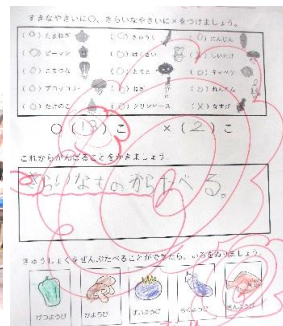 すきなやさいに○、きらいなやさいに×をつけましょう。
(○)たまねぎ (○)きゅうり (○)にんじん
(○)ピーマン (○)はくさい (×)しいたけ
(○)こまつな (○)とまと (○)キャベツ
(○)ブロッコリー (○)ねぎ (○)れんこん
(○)たけのこ (○)グリンピース (×)なすび
○(13)こ ×(2)こ
これからがんばることをかきましょう
きらいなものからたべる。
きゅうしょくをぜんぶたべることができたら、いろをぬりましょう
げつようび かようび すいようび もくようび きんようび